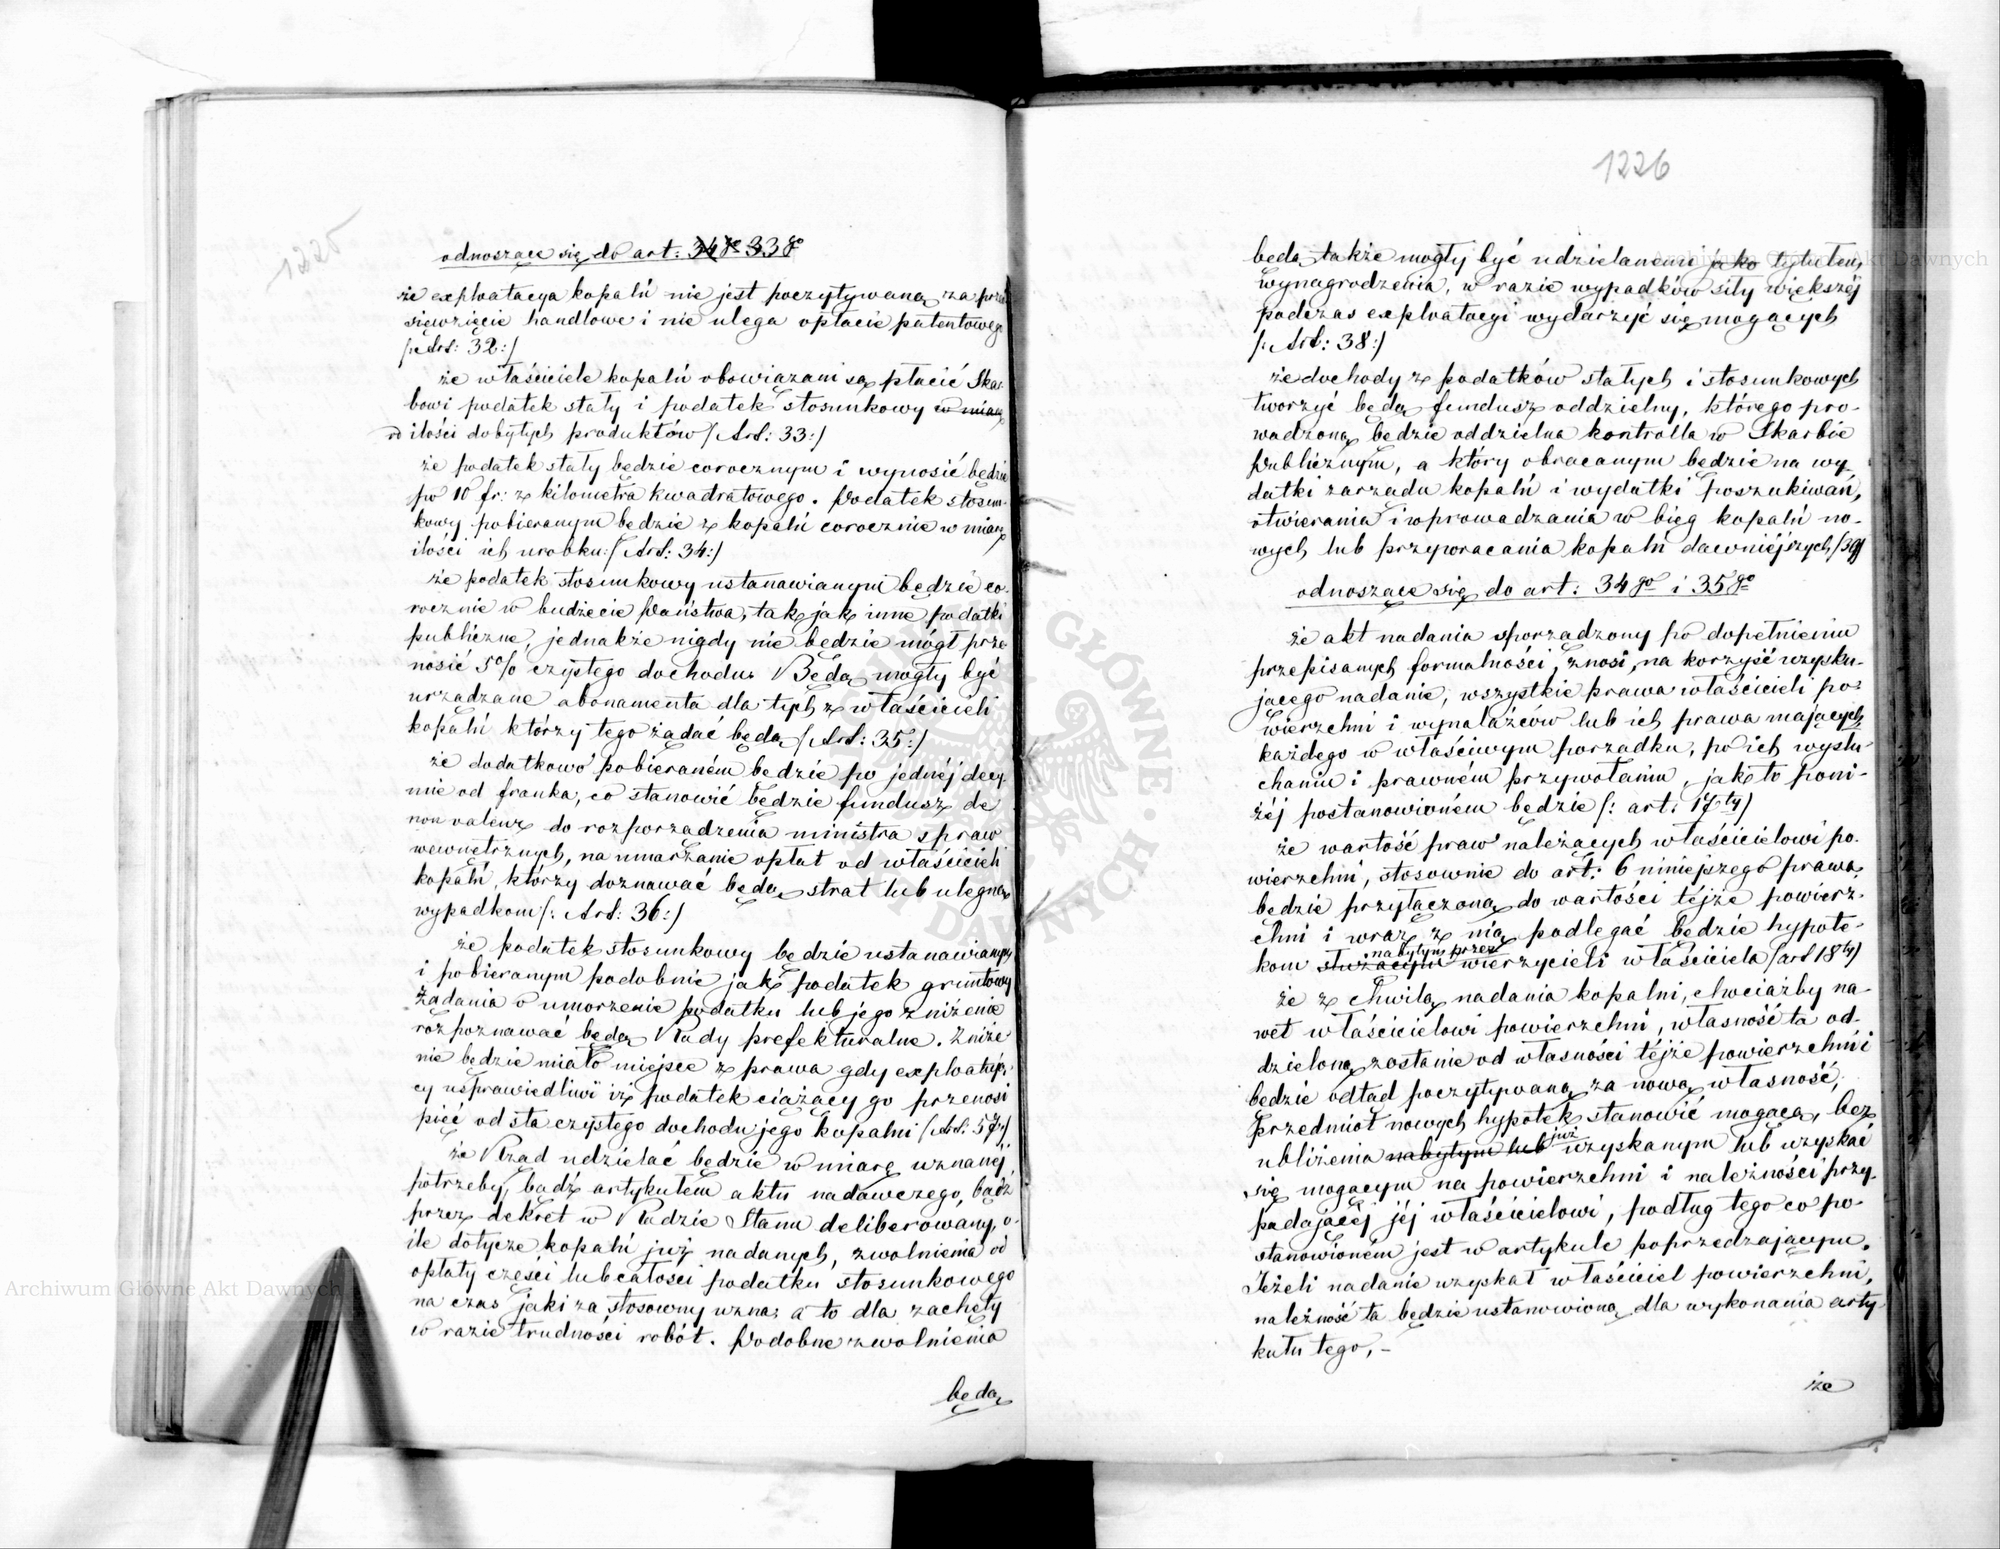 1225
odnoszące się do art: 34go 33go
że exploatacya kopalń nie jest poczytywaną za przed
sięwzięcie handlowe i nie ulega opłacie patentowej
/: Art: 32:/
że właściciele kopalń obowiązani są płacić Skar-
bowi podatek stały i podatek stosunkowy w miarę
od ilości dobytych produktów /Art: 33:/
że podatek stały będzie corocznym i wynosić będzie
po 10 fr: z kilometra kwadratowego. Podatek stosun-
kowy pobieranym będzie z kopalń corocznie w miarę
ilości ich urobku: /Art: 34:/
że podatek stosunkowy ustanawianym będzie co-
rocznie w budżecie Państwa, tak jak inne podatki
publiczne, jednakże nigdy nie będzie mógł prze-
nosić 5% czystego dochodu. Będą mogły być
urządzane abonamenta dla tych z właścicieli
kopalń którzy tego żądać będą /Art: 35:/
że dodatkowo pobieraném będzie po jednéj decy-
mie od franka, co stanowić będzie fundusz de
non valeur do rozporządzenia ministra spraw
wewnętrznych, na umarzanie opłat od właścicieli
kopalń, którzy doznawać będą strat lub ulegną
wypadkom /: Art: 36:/
że podatek stosunkowy będzie ustanawianym
i pobieranym podobnie jak podatek gruntowy
Żądania o umorzenie podatku lub jego zniżenie
rozpoznawać będą Rady prefekturalne. Zniże-
nie będzie miało miejsce z prawa gdy exploatują-
cy usprawiedliwi iż podatek ciążący go przenosi
pięć od sta czystego dochodu jego kopalni /Art: 37:/
że Rząd udzielać będzie w miarę uznanéj
potrzeby, bądź artykułem aktu nadawczego, bądź
przez dekret w Radzie Stanu deliberowany, o-
ile dotycze kopalń już nadanych, zwolnienia od
opłaty części lub całości podatku stosunkowego
na czas jaki za stosowny uzna; a to dla zachęty
w razie trudności robót. Podobne zwolnienia
będą
1226
będą także mogły być udzielanemi jako tytułem
wynagrodzenia, w razie wypadków siły większéj
podczas exploatacyi wydarzyć się mogących
/: Art: 38:/
że dochody z podatków stałych i stosunkowych
tworzyć będą fundusz oddzielny, którego pro-
wadzoną będzie oddzielna kontrolla w Skarbie
Publicznym, a który obracanym będzie na wy-
datki zarządu kopalń i wydatki poszukiwań,
otwierania i wprowadzania w bieg kopalń no-
wych lub przywracania kopalń dawniejszych /39/
odnoszące się do art: 34go i 35go
że akt nadania sporządzony po dopełnieniu
przepisanych formalności, znosi, na korzyść uzysku-
jącego nadanie, wszystkie prawa właścicieli po-
wierzchni i wynalazców lub ich prawa mających
każdego w właściwym porządku, po ich wysłu-
chaniu i prawném przywołaniu, jak to poni-
żéj postanowioném będzie /: art: 17ty/
że wartość praw należących właścicielowi po-
wierzchni, stosownie do art: 6 niniejszego prawa,
będzie przyłączoną do wartości téjże powierz-
chni i wraz z nią podlegać będzie hypote-
kom służącym nabytym przez wierzycieli właściciela /art 18ty/
że z chwilą nadania kopalni, chociażby na-
wet właścicielowi powierzchni, własność ta od-
dzieloną zostanie od własności téjże powierzchni i
będzie odtąd poczytywaną za nową własność,
przedmiot nowych hypotek stanowić mogącą, bez
ubliżenia nabytym lub już uzyskanym lub uzyskać
się mogącym na powierzchni i należności przy-
padającéj jéj właścicielowi, podług tego co po-
stanowioném jest w artykule poprzedzającym.
Jeżeli nadanie uzyskał właściciel powierzchni,
należność ta będzie ustanowioną dla wykonania arty-
kułu tego, –
że
Archiwum Główne Akt Dawnych
Archiwum Główne Akt Dawnych
ARCHIWUM GŁÓWNE AKT DAWNYCH